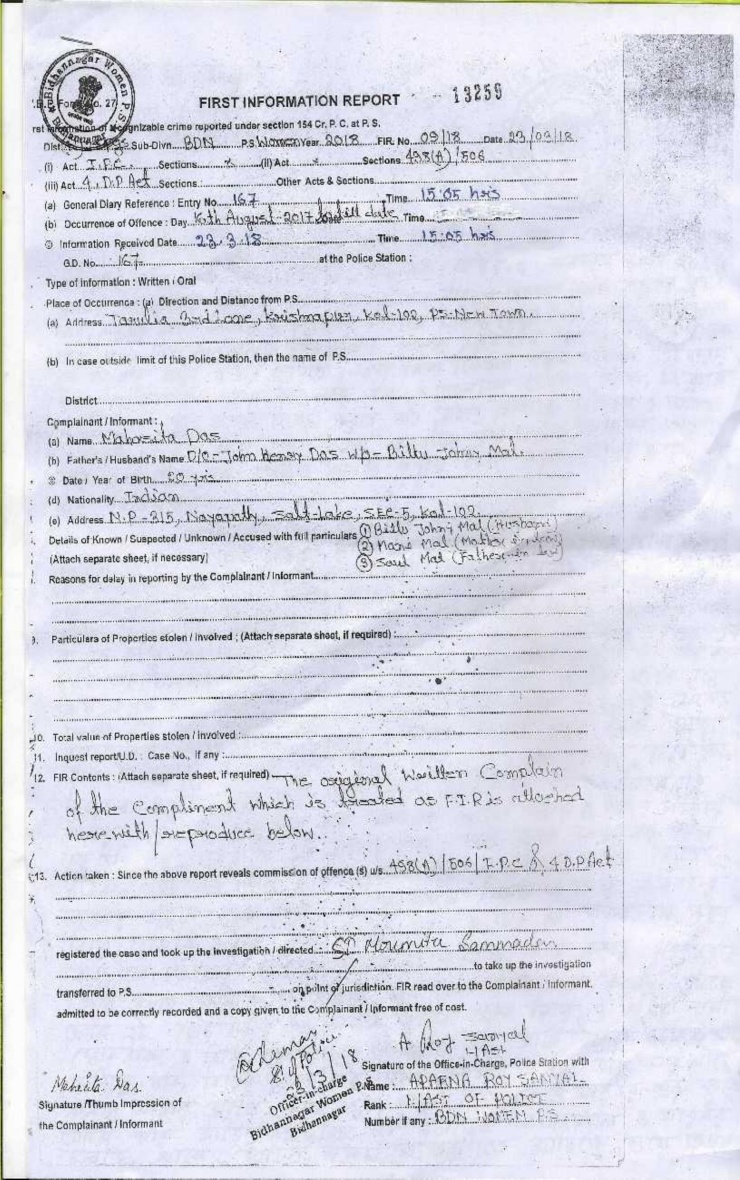 Bidhannagar Women P.S.
Bidhannagar
Form No. 27
FIRST INFORMATION REPORT 13259
rst Information of cognizable crime reported under section 154 Cr. P. C. at P. S.
Dist. Sub-Divn. BDN P.S Women Year 2018 FIR. No. 09/18 Date 23/03/18
(i) Act I.P.C. Sections x (ii) Act x Sections 498(A)/506
(iii) Act 4, D.P Act Sections : Other Acts & Sections
(a) General Diary Reference : Entry No. 167 Time 15:05 hrs
(b) Occurrence of Offence : Day August-2017 till date Time
© Information Received Date 23.3.18 Time 15:05 hrs
G.D. No. 167 at the Police Station :
Type of Information : Written / Oral
Place of Occurrence : (a) Direction and Distance from P.S.
(a) Address Tarulia 3rd Lane, Krishnapur, Kol-102, PS-New Town.
(b) In case outside limit of this Police Station, then the name of P.S.
District
Complainant / Informant :
(a) Name Mahasita Das
(b) Father's / Husband's Name D/O- John Henry Das W/o- Biltu Johny Mal.
® Date / Year of Birth 20 yrs
(d) Nationality Indian
(e) Address N.P-315, Nayapatty, Salt-Lake, SEC-5, Kol-102.
Details of Known / Suspected / Unknown / Accused with full particulars ① Biltu Johny Mal (Husband)
(Attach separate sheet, if necessary) ② Mani Mal (Mother in law)
③ Saul Mal (Father-in law)
Reasons for delay in reporting by the Complainant / Informant
9. Particulars of Properties stolen / involved ; (Attach separate sheet, if required) :
10. Total value of Properties stolen / involved :
11. Inquest report/U.D. : Case No., if any :
12. FIR Contents : (Attach separate sheet, if required) The original Written Complain
of the Complinent which is treated as F.I.R is attached
herewith/reproduce below.
13. Action taken : Since the above report reveals commission of offence (s) u/s. 498(A)/506/I.P.C & 4 D.P Act
registered the case and took up the investigation / directed : SI Moumita Sammadar
to take up the investigation
transferred to P.S. on point of jurisdiction. FIR read over to the Complainant / Informant.
admitted to be correctly recorded and a copy given to the Complainant / Informant free of cost.
A Roy Sanyal
L/ASI
S.I of Police
23/3/18
Officer-in-Charge
Bidhannagar Women P.S
Bidhannagar
Signature of the Office-in-Charge, Police Station with
Name : APARNA ROY SANYAL
Rank : L/ASI OF POLICE
Number if any : BDN WOMEN P.S.
Mahasita Das.
Signature /Thumb Impression of
the Complainant / Informant